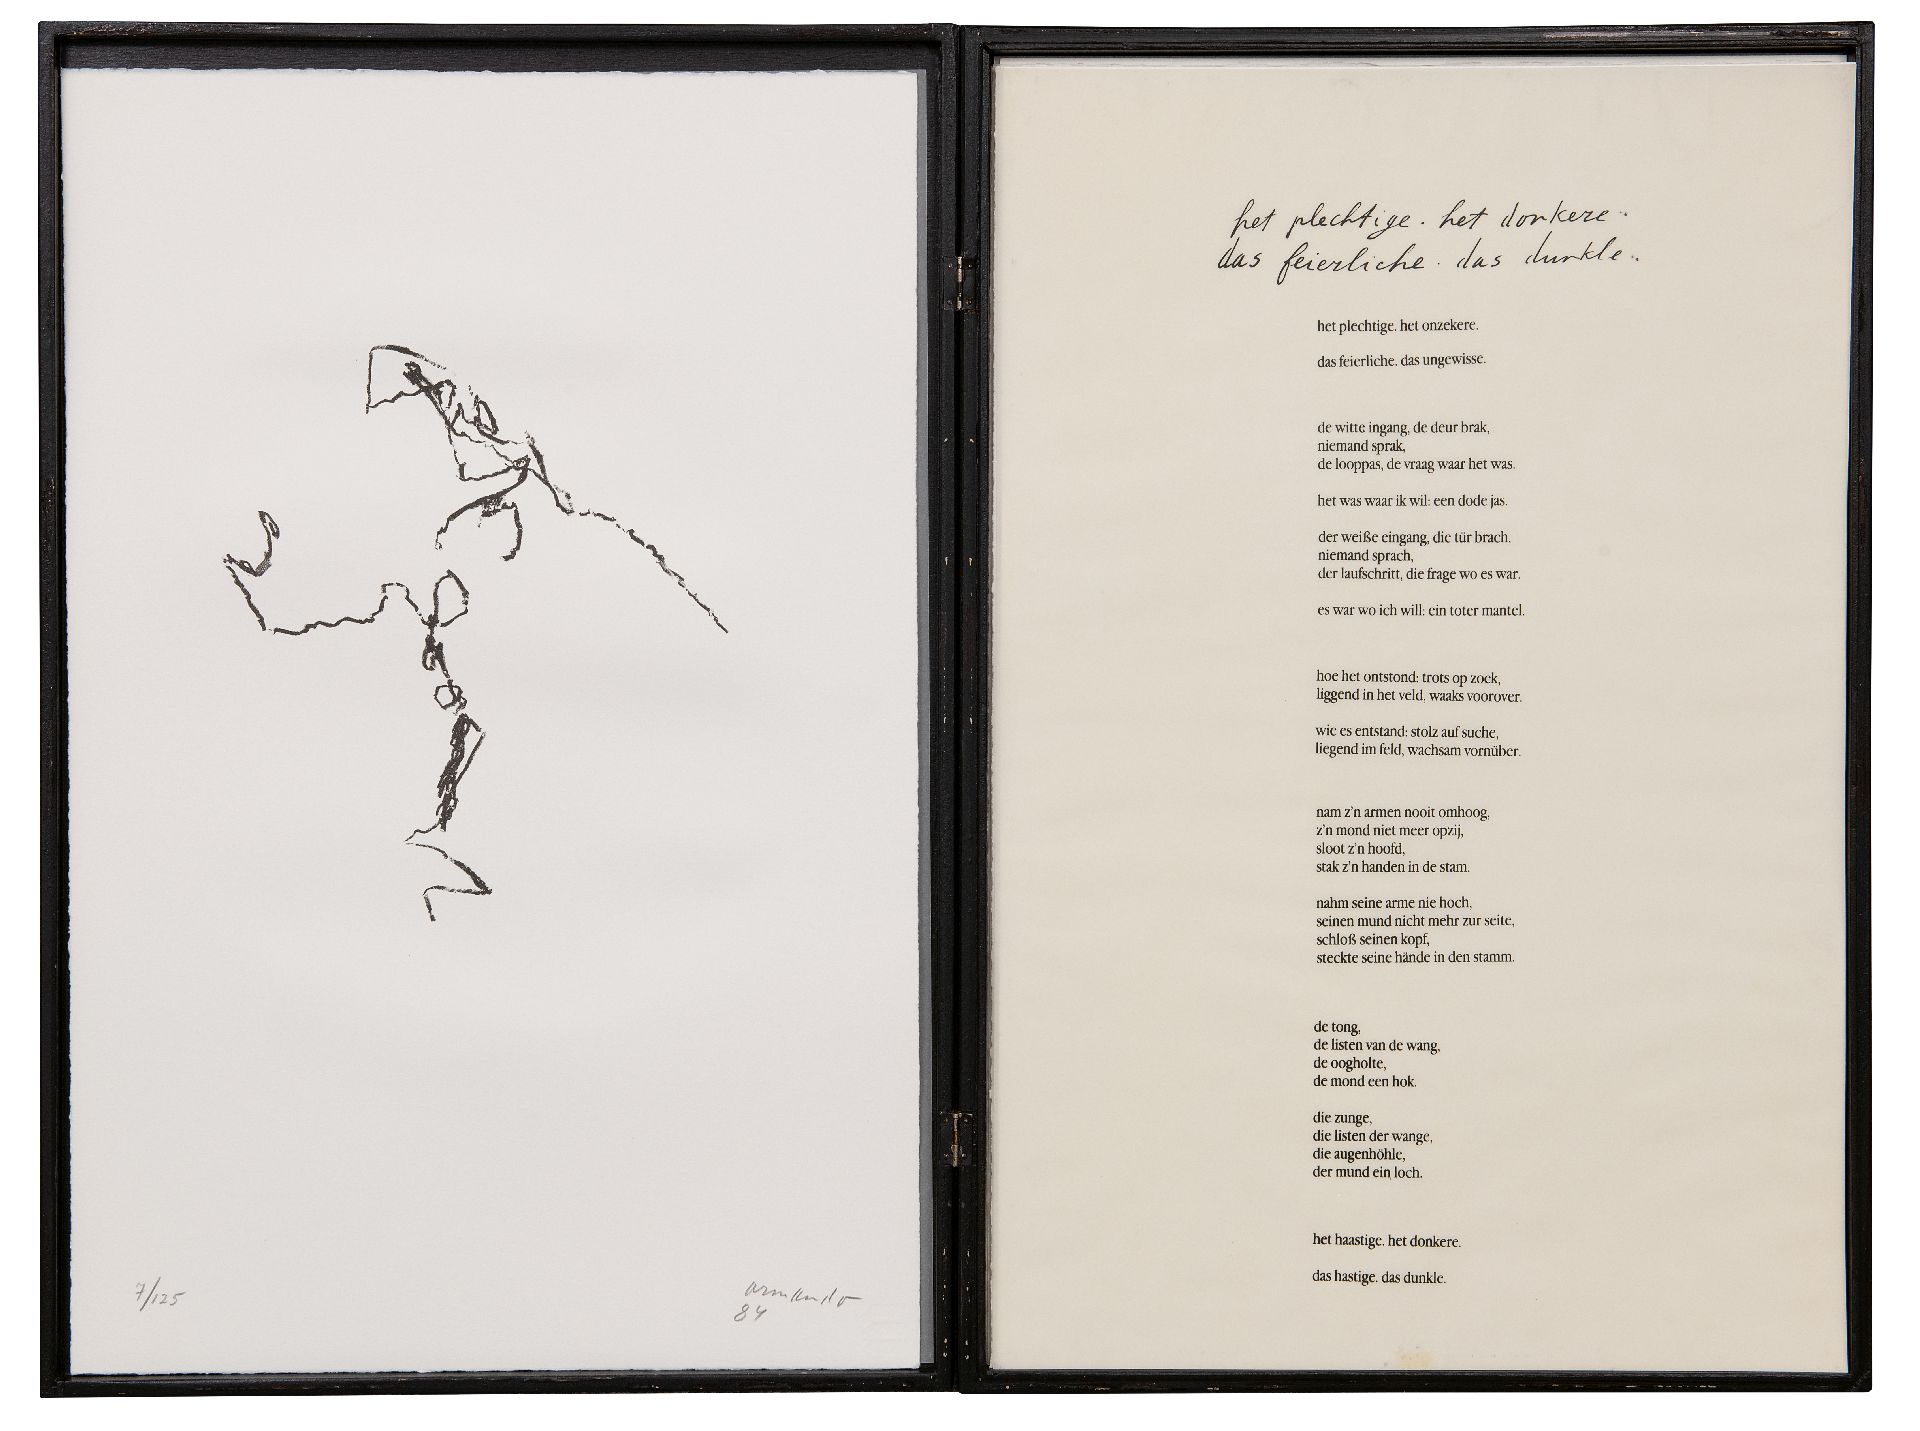 7/125
armando
84
het plechtige. het donkere.
das feierliche. das dunkle.
het plechtige. het onzekere.
das feierliche. das ungewisse.
de witte ingang, de deur brak,
niemand sprak,
de looppas, de vraag waar het was.
het was waar ik wil: een dode jas.
der weiße eingang, die tür brach.
niemand sprach,
der laufschritt, die frage wo es war.
es war wo ich will: ein toter mantel.
hoe het ontstond: trots op zoek,
liggend in het veld, waaks voorover.
wie es entstand: stolz auf suche,
liegend im feld, wachsam vornüber.
nam z'n armen nooit omhoog,
z'n mond niet meer opzij,
sloot z'n hoofd,
stak z'n handen in de stam.
nahm seine arme nie hoch,
seinen mund nicht mehr zur seite,
schloß seinen kopf,
steckte seine hände in den stamm.
de tong,
de listen van de wang,
de oogholte,
de mond een hok.
die zunge,
die listen der wange,
die augenhöhle,
der mund ein loch.
het haastige. het donkere.
das hastige. das dunkle.